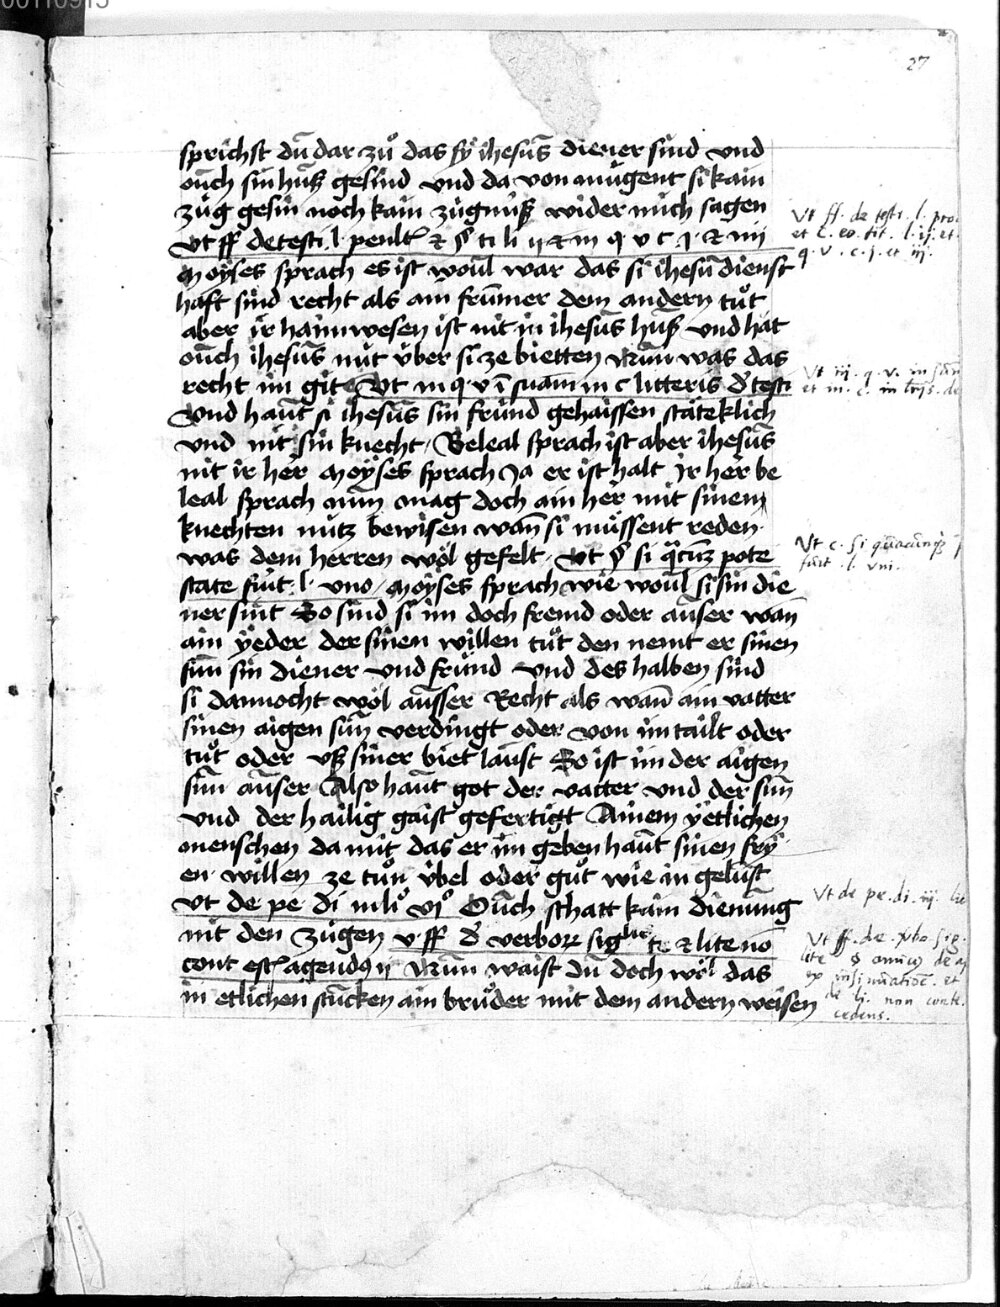 00110915
27
sprichst dū dar zů das sy ihesūs diener sind und
oūch sin hūß gesind und da von mügent si kain
züg gesin noch kain zügnüß wider mich sagen
Ut ff de testi l penult
Moyses sprach es ist woūl war das si ihesū dienst
haft sind recht als ain frūmer dem andern tůt
aber ir hainwesen ist nit in ihesūs hūß und hāt
oūch ihesūs nüt über si ze bietten warūm was das
recht im git Ut iii q v i suam in c litteris d testi
Und haūt si ihesūs sin fründ gehaissen stäteklich
und nit sin knecht Beleal sprach ist aber ihesūs
nit ir her Moyses sprach Ja er ist halt Ir her be
leal sprach nun mag doch ain her mit sinem
knechten nütz bewisen wañ si müssent reden
was dem herren wol gefelt Ut § si qcūz pote
state fūit l uno Moyses sprach wie woūl si sin die
ner sint So sind si im doch fremd oder aūser wañ
ain yeder der sinen willen tůt den nemt er sinen
sūn sin diener und fründ und des halben sind
si dannocht wol aūsser Recht als wañ ain vatter
sinen aigen sūn verdingt oder von im tailt oder
tůt oder uß siner biet laūst So ist im der aigen
sūn aūser Also haūt got der vatter und der sūn
und der hailig gaist gefertigt Ainem yetlichen
menschen da mit das er im geben haūt sinen fry
en willen ze tůn übel oder gůt wie in gelüst
Ut de pe di iiii Oūch schatt kain dienūng
nit den zügen v ff d verbor sig
cont est agendūs ii Warūm waist dū doch wol das
in etlichen stücken ain brůder mit dem andern weisen
Ut ff. de testi. l. pro.
et c. eo. tit. l. ij. et.
q. v. c. j. et iij.
Ut iij. q. v. in suā
et in c. in lrīs. de
Ut c. si quacūnqz
fūit l. viii.
Ut de pe. di. iij.
Ut ff. de vbo sig
lite § amicū de a
ex insinuatioē. et
de li. non conte.
cedens.